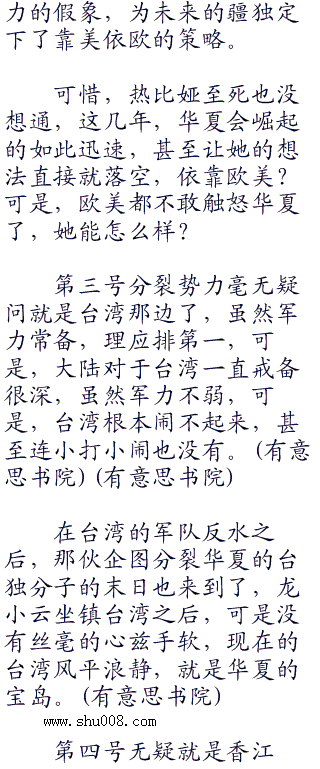 力的假象，为未来的疆独定
下了靠美依欧的策略。
可惜，热比娅至死也没
想通，这几年，华夏会崛起
的如此迅速，甚至让她的想
法直接就落空，依靠欧美？
可是，欧美都不敢触怒华夏
了，她能怎么样？
第三号分裂势力毫无疑
问就是台湾那边了，虽然军
力常备，理应排第一，可
是，大陆对于台湾一直戒备
很深，虽然军力不弱，可
是，台湾根本闹不起来，甚
至连小打小闹也没有。(有意
思书院)(有意思书院)
在台湾的军队反水之
后，那伙企图分裂华夏的台
独分子的末日也来到了，龙
小云坐镇台湾之后，可是没
有丝毫的心兹手软，现在的
台湾风平浪静，就是华夏的
宝岛。(有意思书院)
www.shu008.com
第四号无疑就是香江